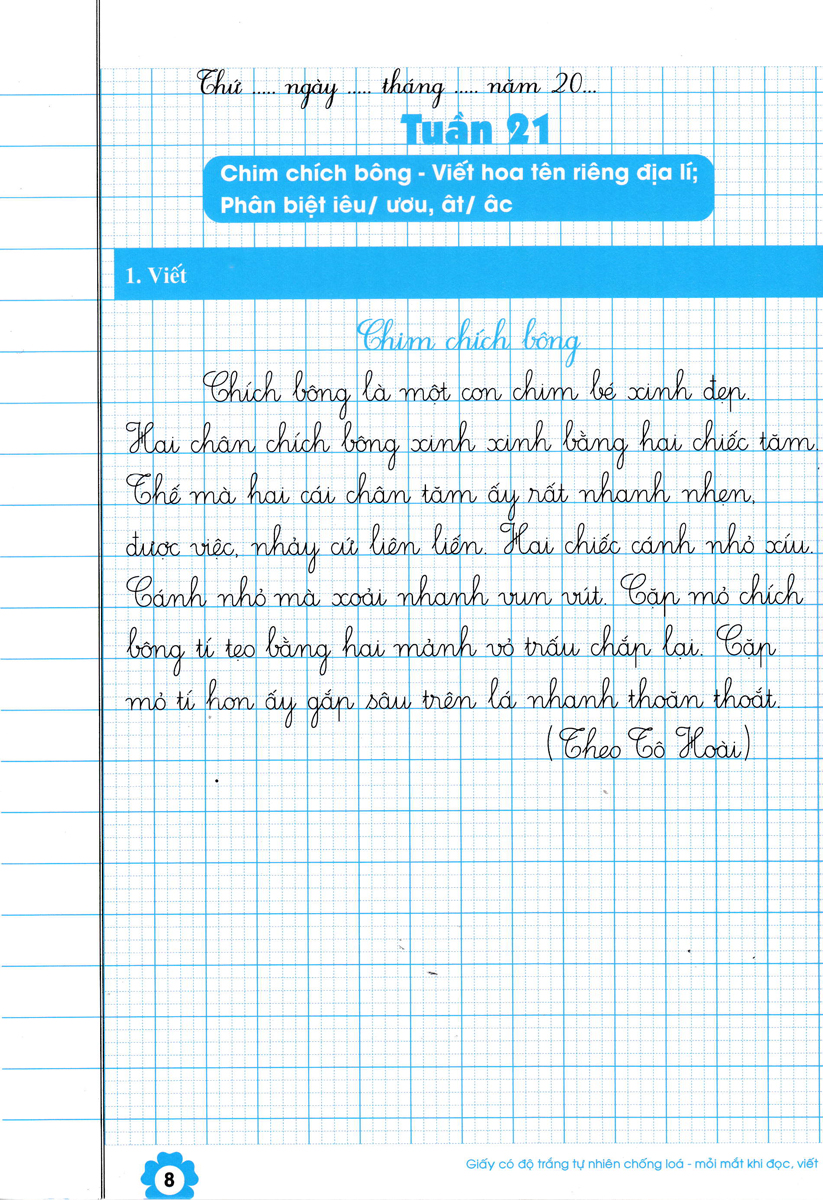 Thứ ..... ngày ..... tháng ..... năm 20...
Tuần 21
Chim chích bông - Viết hoa tên riêng địa lí;
Phân biệt iêu/ ươu, ât/ âc
1. Viết
Chim chích bông
Chích bông là một con chim bé xinh đẹp.
Hai chân chích bông xinh xinh bằng hai chiếc tăm.
Thế mà hai cái chân tăm ấy rất nhanh nhẹn,
được việc, nhảy cứ liên liến. Hai chiếc cánh nhỏ xíu.
Cánh nhỏ mà xoải nhanh vun vút. Cặp mỏ chích
bông tí tẹo bằng hai mảnh vỏ trấu chắp lại. Cặp
mỏ tí hon ấy gắp sâu trên lá nhanh thoăn thoắt.
(Theo Tô Hoài)
8
Giấy có độ trắng tự nhiên chống loá - mỏi mắt khi đọc, viết